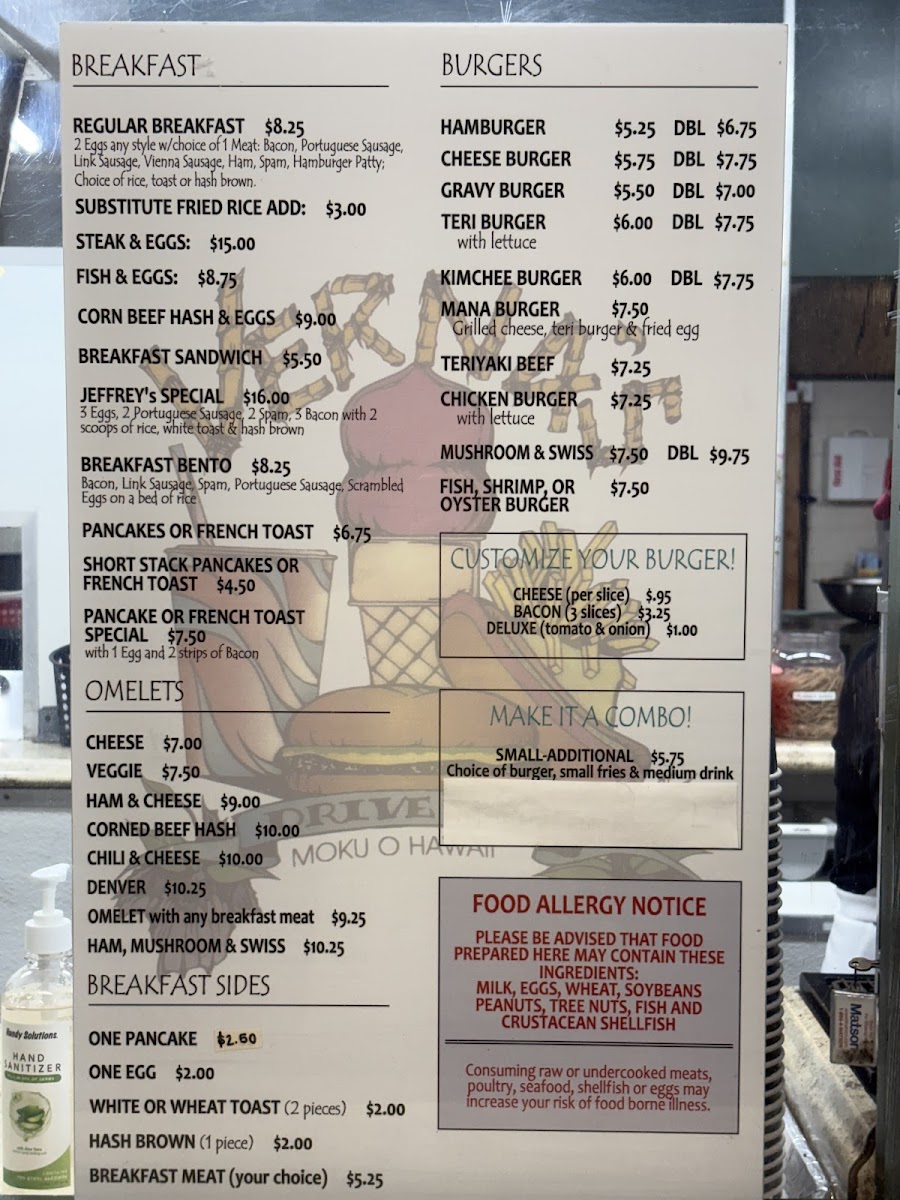 BREAKFAST
REGULAR BREAKFAST $8.25
2 Eggs any style w/choice of 1 Meat: Bacon, Portuguese Sausage,
Link Sausage, Vienna Sausage, Ham, Spam, Hamburger Patty;
Choice of rice, toast or hash brown.
SUBSTITUTE FRIED RICE ADD: $3.00
STEAK & EGGS: $15.00
FISH & EGGS: $8.75
CORN BEEF HASH & EGGS $9.00
BREAKFAST SANDWICH $5.50
JEFFREY's SPECIAL $16.00
3 Eggs, 2 Portuguese Sausage, 2 Spam, 3 Bacon with 2
scoops of rice, white toast & hash brown
BREAKFAST BENTO $8.25
Bacon, Link Sausage, Spam, Portuguese Sausage, Scrambled
Eggs on a bed of rice
PANCAKES OR FRENCH TOAST $6.75
SHORT STACK PANCAKES OR
FRENCH TOAST $4.50
PANCAKE OR FRENCH TOAST
SPECIAL $7.50
with 1 Egg and 2 strips of Bacon
OMELETS
CHEESE $7.00
VEGGIE $7.50
HAM & CHEESE $9.00
CORNED BEEF HASH $10.00
CHILI & CHEESE $10.00
DENVER $10.25
OMELET with any breakfast meat $9.25
HAM, MUSHROOM & SWISS $10.25
BREAKFAST SIDES
ONE PANCAKE $2.60
ONE EGG $2.00
WHITE OR WHEAT TOAST (2 pieces) $2.00
HASH BROWN (1 piece) $2.00
BREAKFAST MEAT (your choice) $5.25
BURGERS
HAMBURGER $5.25 DBL $6.75
CHEESE BURGER $5.75 DBL $7.75
GRAVY BURGER $5.50 DBL $7.00
TERI BURGER $6.00 DBL $7.75
with lettuce
KIMCHEE BURGER $6.00 DBL $7.75
MANA BURGER $7.50
Grilled cheese, teri burger & fried egg
TERIYAKI BEEF $7.25
CHICKEN BURGER $7.25
with lettuce
MUSHROOM & SWISS $7.50 DBL $9.75
FISH, SHRIMP, OR $7.50
OYSTER BURGER
CUSTOMIZE YOUR BURGER!
CHEESE (per slice) $.95
BACON (3 slices) $3.25
DELUXE (tomato & onion) $1.00
MAKE IT A COMBO!
SMALL-ADDITIONAL $5.75
Choice of burger, small fries & medium drink
FOOD ALLERGY NOTICE
PLEASE BE ADVISED THAT FOOD
PREPARED HERE MAY CONTAIN THESE
INGREDIENTS:
MILK, EGGS, WHEAT, SOYBEANS
PEANUTS, TREE NUTS, FISH AND
CRUSTACEAN SHELLFISH
Consuming raw or undercooked meats,
poultry, seafood, shellfish or eggs may
increase your risk of food borne illness.
VERNA'S
DRIVE
MOKU O HAWAII
Handy Solutions.
HAND
SANITIZER
Matson